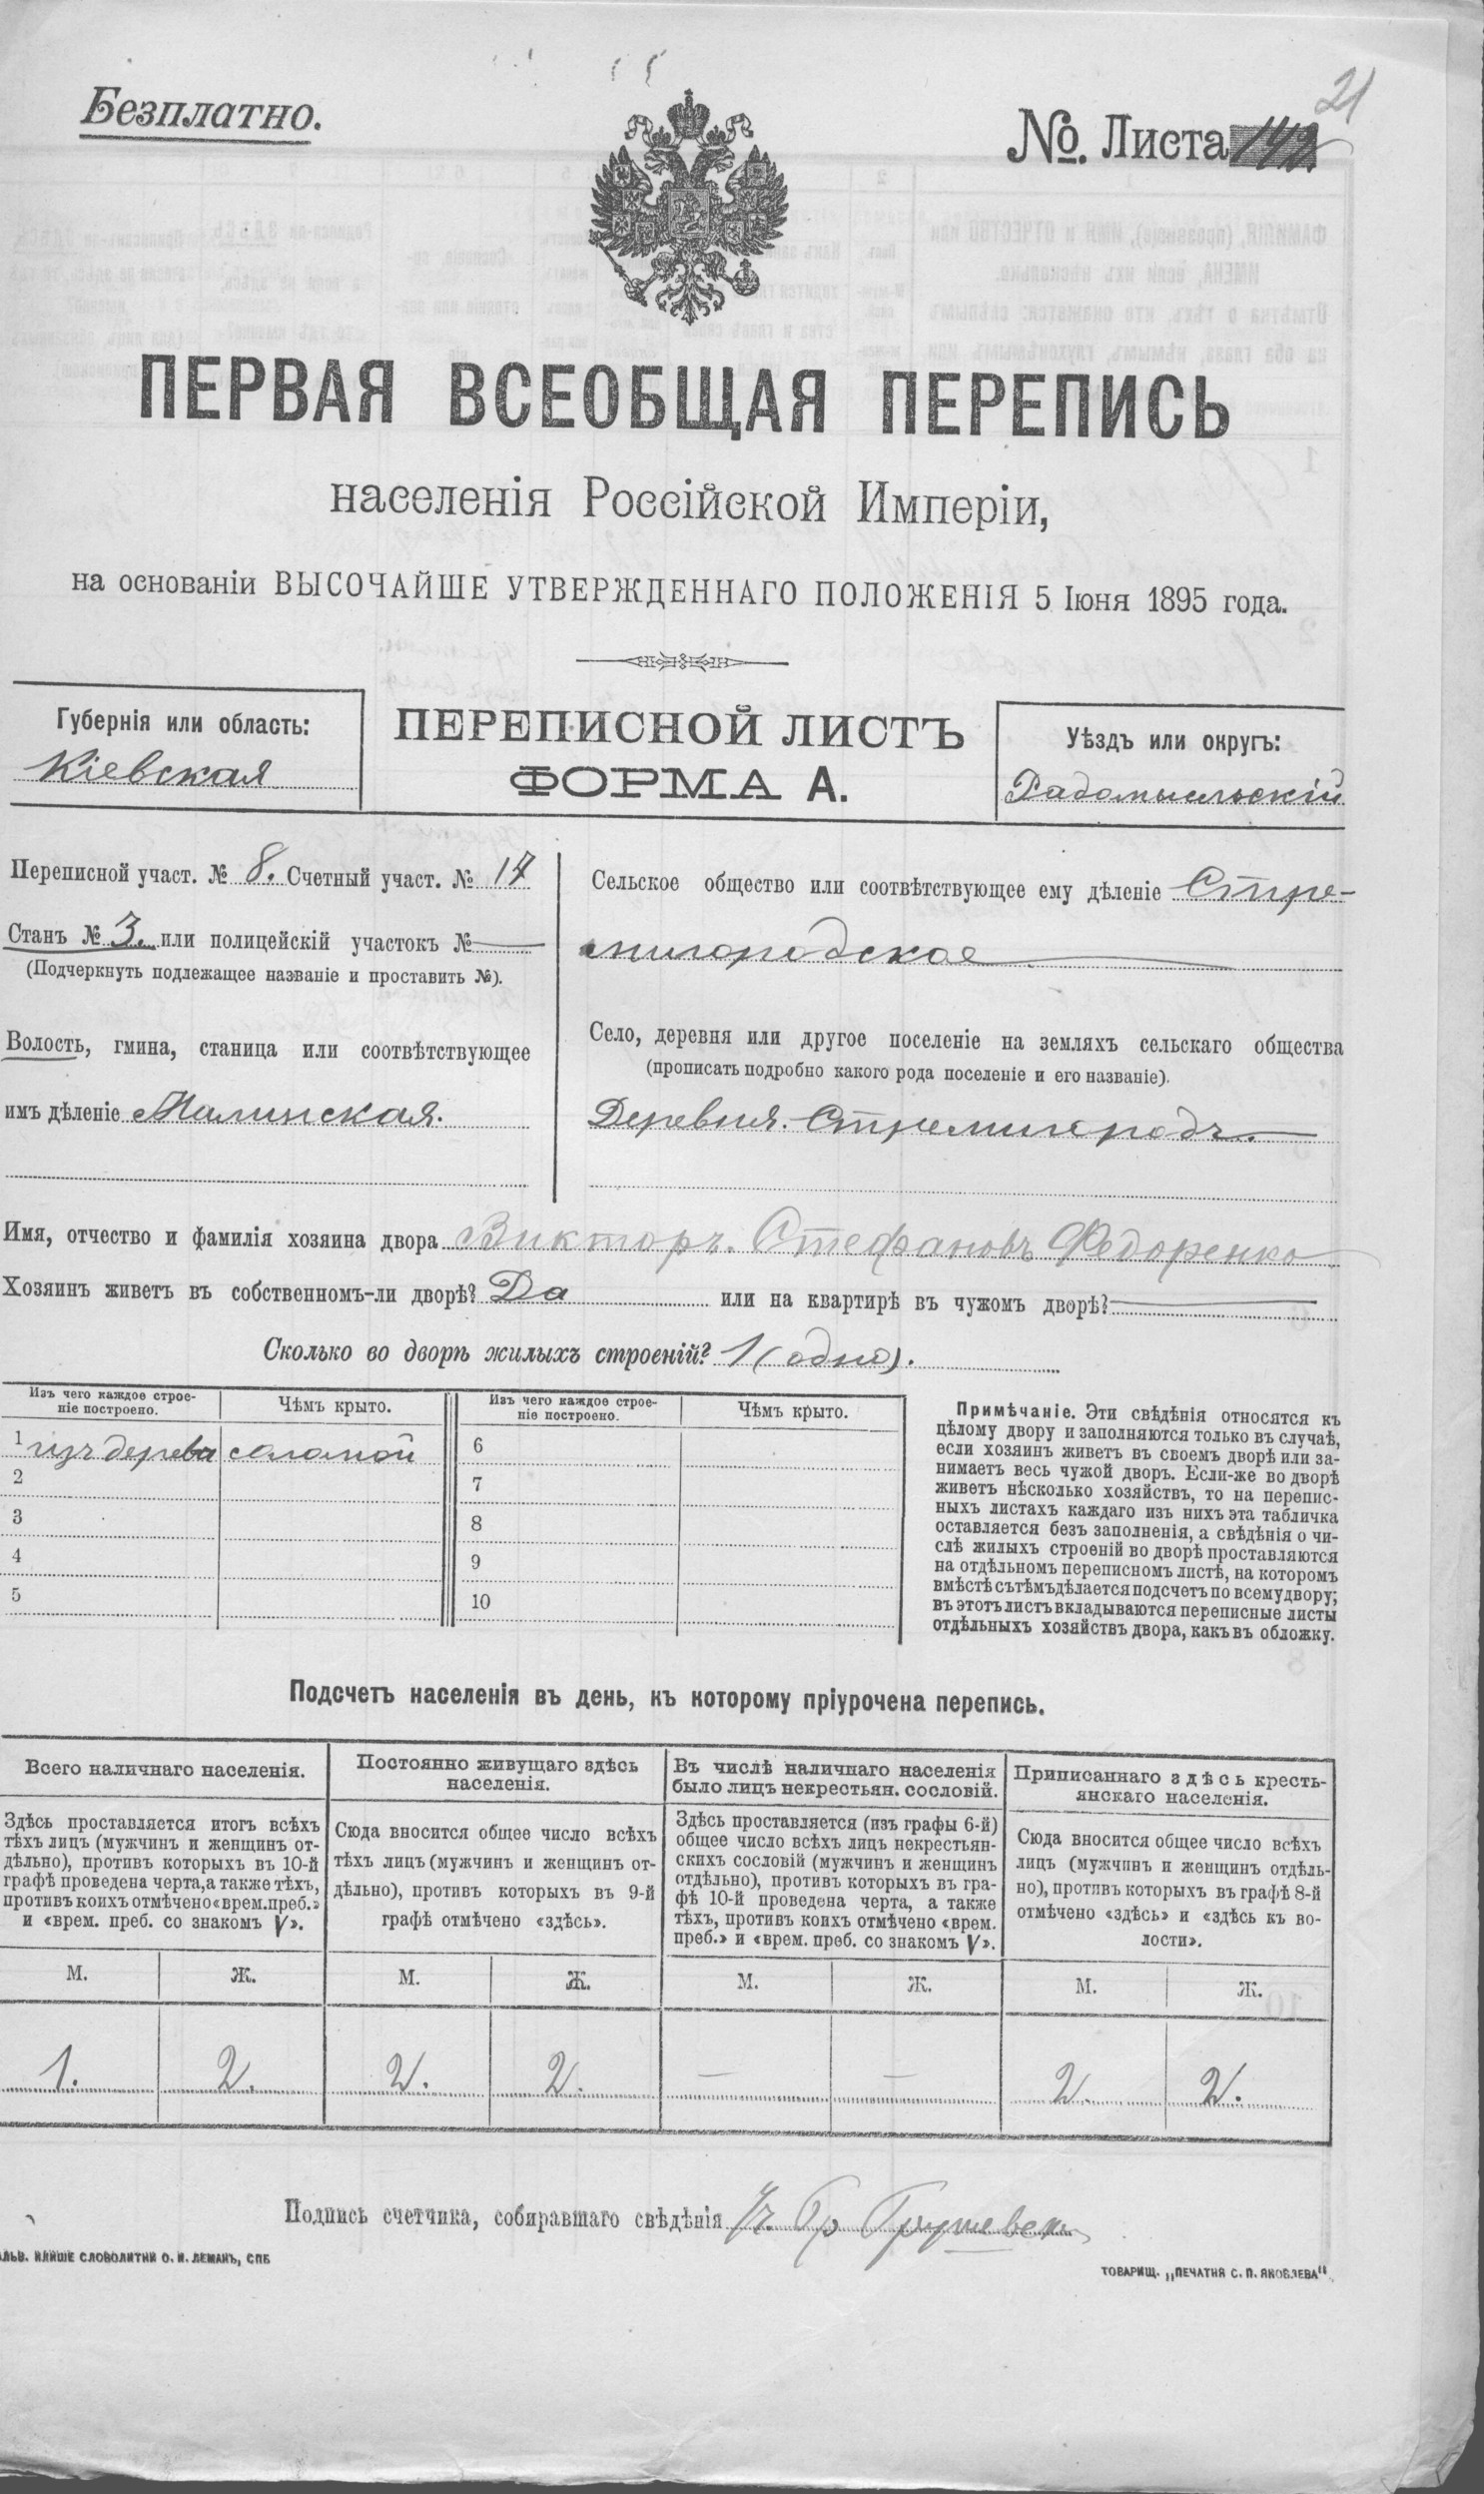 21
Безплатно.
№. Листа 142
ПЕРВАЯ ВСЕОБЩАЯ ПЕРЕПИСЬ
населенія Россійской Имперіи,
на основаніи ВЫСОЧАЙШЕ УТВЕРЖДЕННАГО ПОЛОЖЕНІЯ 5 Іюня 1895 года.
Губернія или область:
Кіевская
ПЕРЕПИСНОЙ ЛИСТЪ
ФОРМА А.
Уѣздъ или округъ:
Радомысльскій
Переписной участ. № 8. Счетный участ. № 17
Станъ № 3. или полицейскій участокъ № —
(Подчеркнуть подлежащее названіе и проставить №).
Волость, гмина, станица или соотвѣтствующее
имъ дѣленіе Малинская.
Сельское общество или соотвѣтствующее ему дѣленіе Стре-
мигородское
Село, деревня или другое поселеніе на земляхъ сельскаго общества
(прописать подробно какого рода поселеніе и его названіе).
Деревня. Стремигородъ.
Имя, отчество и фамилія хозяина двора Викторъ. Стефановъ Федоренко
Хозяинъ живетъ въ собственномъ-ли дворѣ? Да или на квартирѣ въ чужомъ дворѣ? —
Сколько во дворѣ жилыхъ строеній? 1 (одно).
Изъ чего каждое строе-
ніе построено.
Чѣмъ крыто.
Изъ чего каждое строе-
ніе построено.
Чѣмъ крыто.
1 изъ дерева соломой
2
3
4
5
6
7
8
9
10
Примѣчаніе. Эти свѣдѣнія относятся къ
цѣлому двору и заполняются только въ случаѣ,
если хозяинъ живетъ въ своемъ дворѣ или за-
нимаетъ весь чужой дворъ. Если-же во дворѣ
живетъ нѣсколько хозяйствъ, то на перепис-
ныхъ листахъ каждаго изъ нихъ эта табличка
оставляется безъ заполненія, а свѣдѣнія о чи-
слѣ жилыхъ строеній во дворѣ проставляются
на отдѣльномъ переписномъ листѣ, на которомъ
вмѣстѣ съ тѣмъ дѣлается подсчетъ по всему двору;
въ этотъ листъ вкладываются переписные листы
отдѣльныхъ хозяйствъ двора, какъ въ обложку.
Подсчетъ населенія въ день, къ которому пріурочена перепись.
Всего наличнаго населенія.
Здѣсь проставляется итогъ всѣхъ
тѣхъ лицъ (мужчинъ и женщинъ от-
дѣльно), противъ которыхъ въ 10-й
графѣ проведена черта, а также тѣхъ,
противъ коихъ отмѣчено «врем. преб.»
и «врем. преб. со знакомъ V».
М. Ж.
1. 2.
Постоянно живущаго здѣсь
населенія.
Сюда вносится общее число всѣхъ
тѣхъ лицъ (мужчинъ и женщинъ от-
дѣльно), противъ которыхъ въ 9-й
графѣ отмѣчено «здѣсь».
М. Ж.
2. 2.
Въ числѣ наличнаго населенія
было лицъ некрестьян. сословій.
Здѣсь проставляется (изъ графы 6-й)
общее число всѣхъ лицъ некрестьян-
скихъ сословій (мужчинъ и женщинъ
отдѣльно), противъ которыхъ въ гра-
фѣ 10-й проведена черта, а также
тѣхъ, противъ коихъ отмѣчено «врем.
преб.» и «врем. преб. со знакомъ V».
М. Ж.
— —
Приписаннаго здѣсь кресть-
янскаго населенія.
Сюда вносится общее число всѣхъ
лицъ (мужчинъ и женщинъ отдѣль-
но), противъ которыхъ въ графѣ 8-й
отмѣчено «здѣсь» и «здѣсь къ во-
лости».
М. Ж.
2. 2.
Подпись счетчика, собиравшаго свѣдѣнія
АЛЬВ. КЛИШЕ СЛОВОЛИТНИ О. И. ЛЕМАНЪ, СПБ
ТОВАРИЩ. „ПЕЧАТНЯ С. П. ЯКОВЛЕВА"